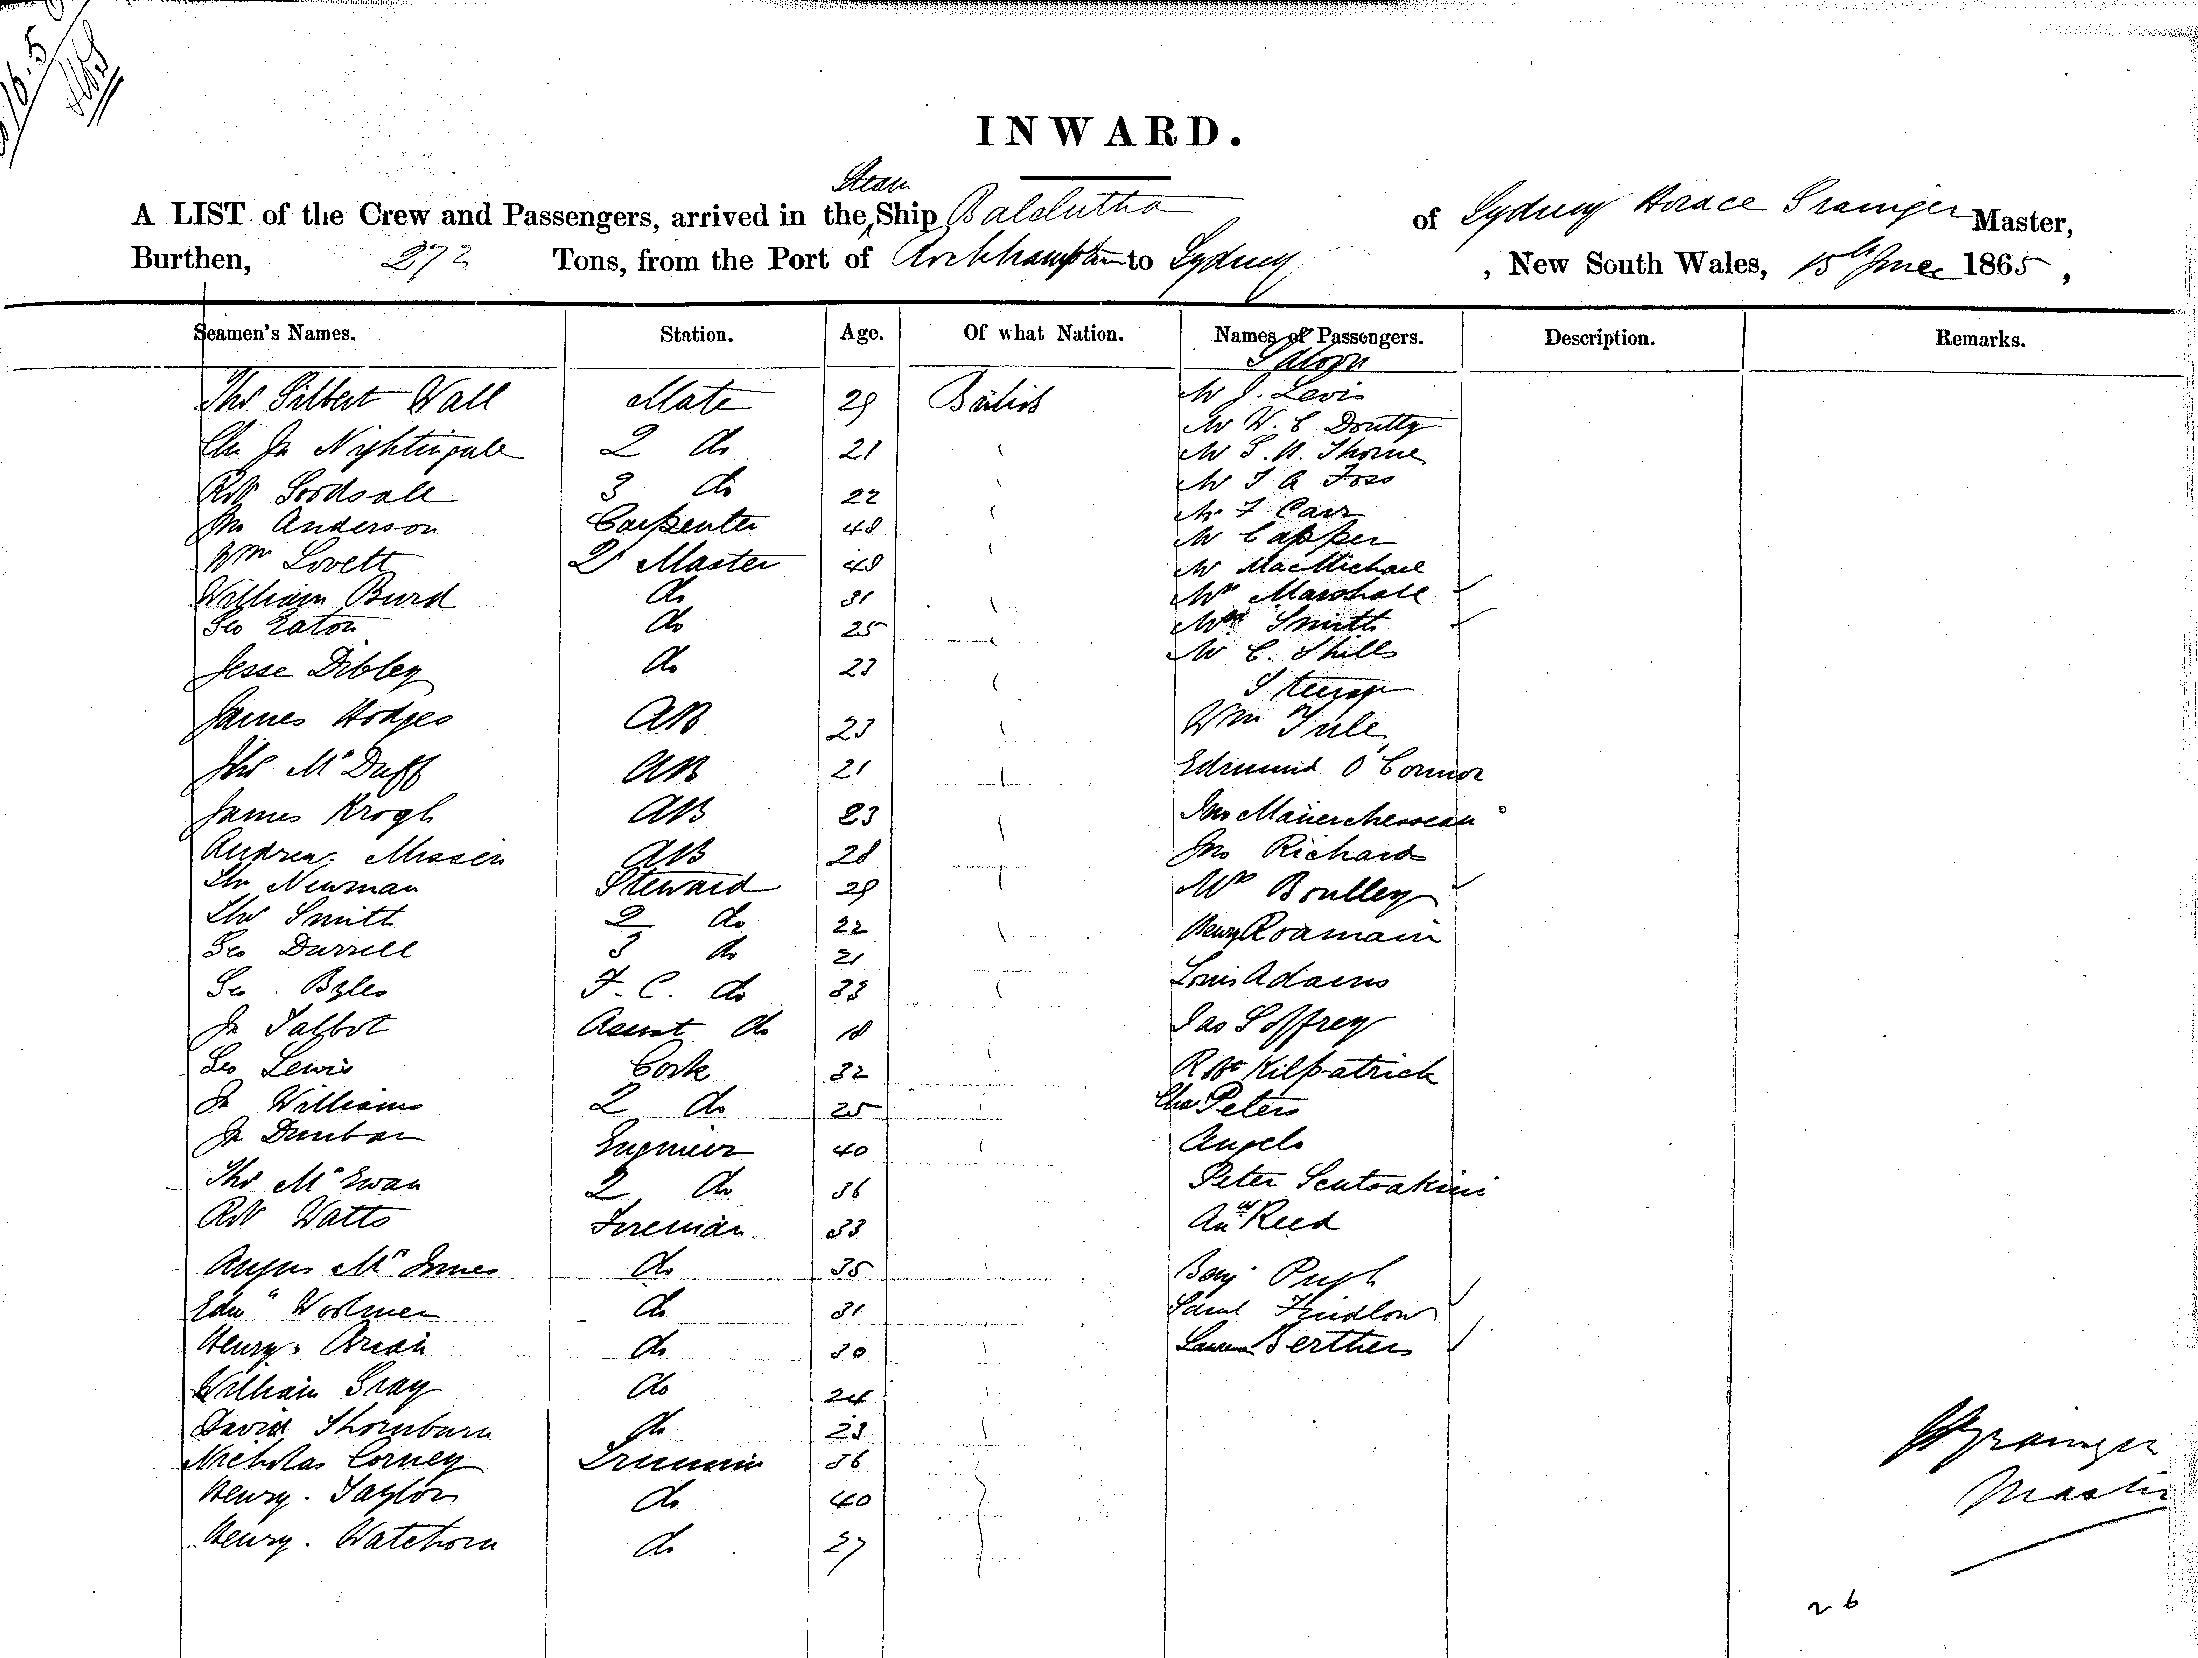 INWARD.
Steam
A LIST of the Crew and Passengers, arrived in the Ship Balclutha of Sydney Horace Grainger Master,
Burthen, 272 Tons, from the Port of Rockhampton to Sydney, New South Wales, 15th June 1865,
Seamen's Names. Station. Age. Of what Nation. Names of Passengers. Description. Remarks.
Saloon
Thos Gilbert Wall Mate 29 British Mr J. Levis
Mr W. C. Doutty
Chs Js Nightingale 2 do 21 Mr S. H. Thorne
Robt Goodsall 3 do 22 Mr T A Foss
Jno Anderson Carpenter 48 Mr F Carr
Mr Capper
Wm Lovett 2 Master 48 Mr MacMichael
William Burd do 31 Mrs Marshall
Geo Eaton do 25 Mrs Smith
Jesse Dibley do 23 Mr C. Shills
Steerage
James Hodges AB 23 Wm Tule
Thos McDuff AB 21 Edmund O'Connor
James Krogh AB 23 Jno
Andrew Missen AB 28 Jno Richards
Thos Newman Steward 29 Mrs Boulley
Thos Smith 2 do 22 Henry Roamain
Geo Durrell 3 do 21
Geo Byles F. C. do 33 Louis Adams
Js Talbot Assist do 18 Jas Goffrey
Geo Lewis Cook 32 Robt Kilpatrick
Js Williams 2 do 25 Chas Peters
Js Dunbar Engineer 40 Angelo
Thos McEwan 2 do 36 Peter
Robt Watts Foreman 33 Reed
Angus McInnes do 35 Benj Pugh
Edwd Woolmer do 31 Saml Findlow
Henry do 30 Berthes
William Gray do 24
David Thornburn do 23
Nicholas Corney Trimmer 36
Henry. Taylor do 40
Henry. Watehorn do 27
Grainger
Master
26